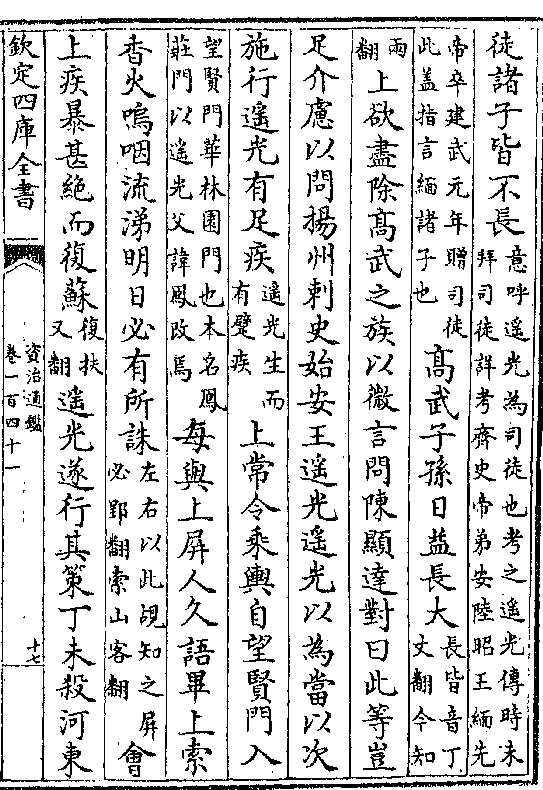 徒諸子皆不長意呼遥光為司徒也考之遥光傳時未拜司徒詳考齊史帝弟安陸昭王緬先
帝卒建武元年贈司徒此盖指言緬諸子也髙武子孫日益長大長皆音丁丈翻今知
兩翻上欲盡除髙武之族以微言問陳顯達對曰此等豈
足介慮以問揚州刺史始安王遥光遥光以為當以次
施行遥光有足疾遥光生而有躄疾上常令乗輿自望賢門入
望賢門華林園門也本名鳳莊門以遥光父諱鳳改焉每與上屏人久語畢上索
香火嗚咽流涕明日必有所誅左右以此覘知之屏必郢翻索山客翻會
上疾暴甚絶而復蘇復扶又翻遥光遂行其策丁未殺河東
欽定四庫全書
資治通鑑
卷一百四十一
十七